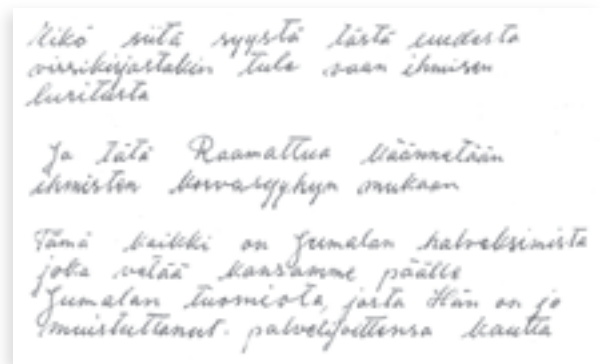 Eikö siitä syystä tästä uudesta
virsikirjastakin tule vaan ihmisen
luritusta
Ja tätä Raamattua käännetään
ihmisten korvasyyhyn mukaan
Tämä kaikki on Jumalan halveksimista
joka vetää kansamme päälle
Jumalan tuomiota, josta Hän on jo
muistuttanut palvelijoittensa kautta